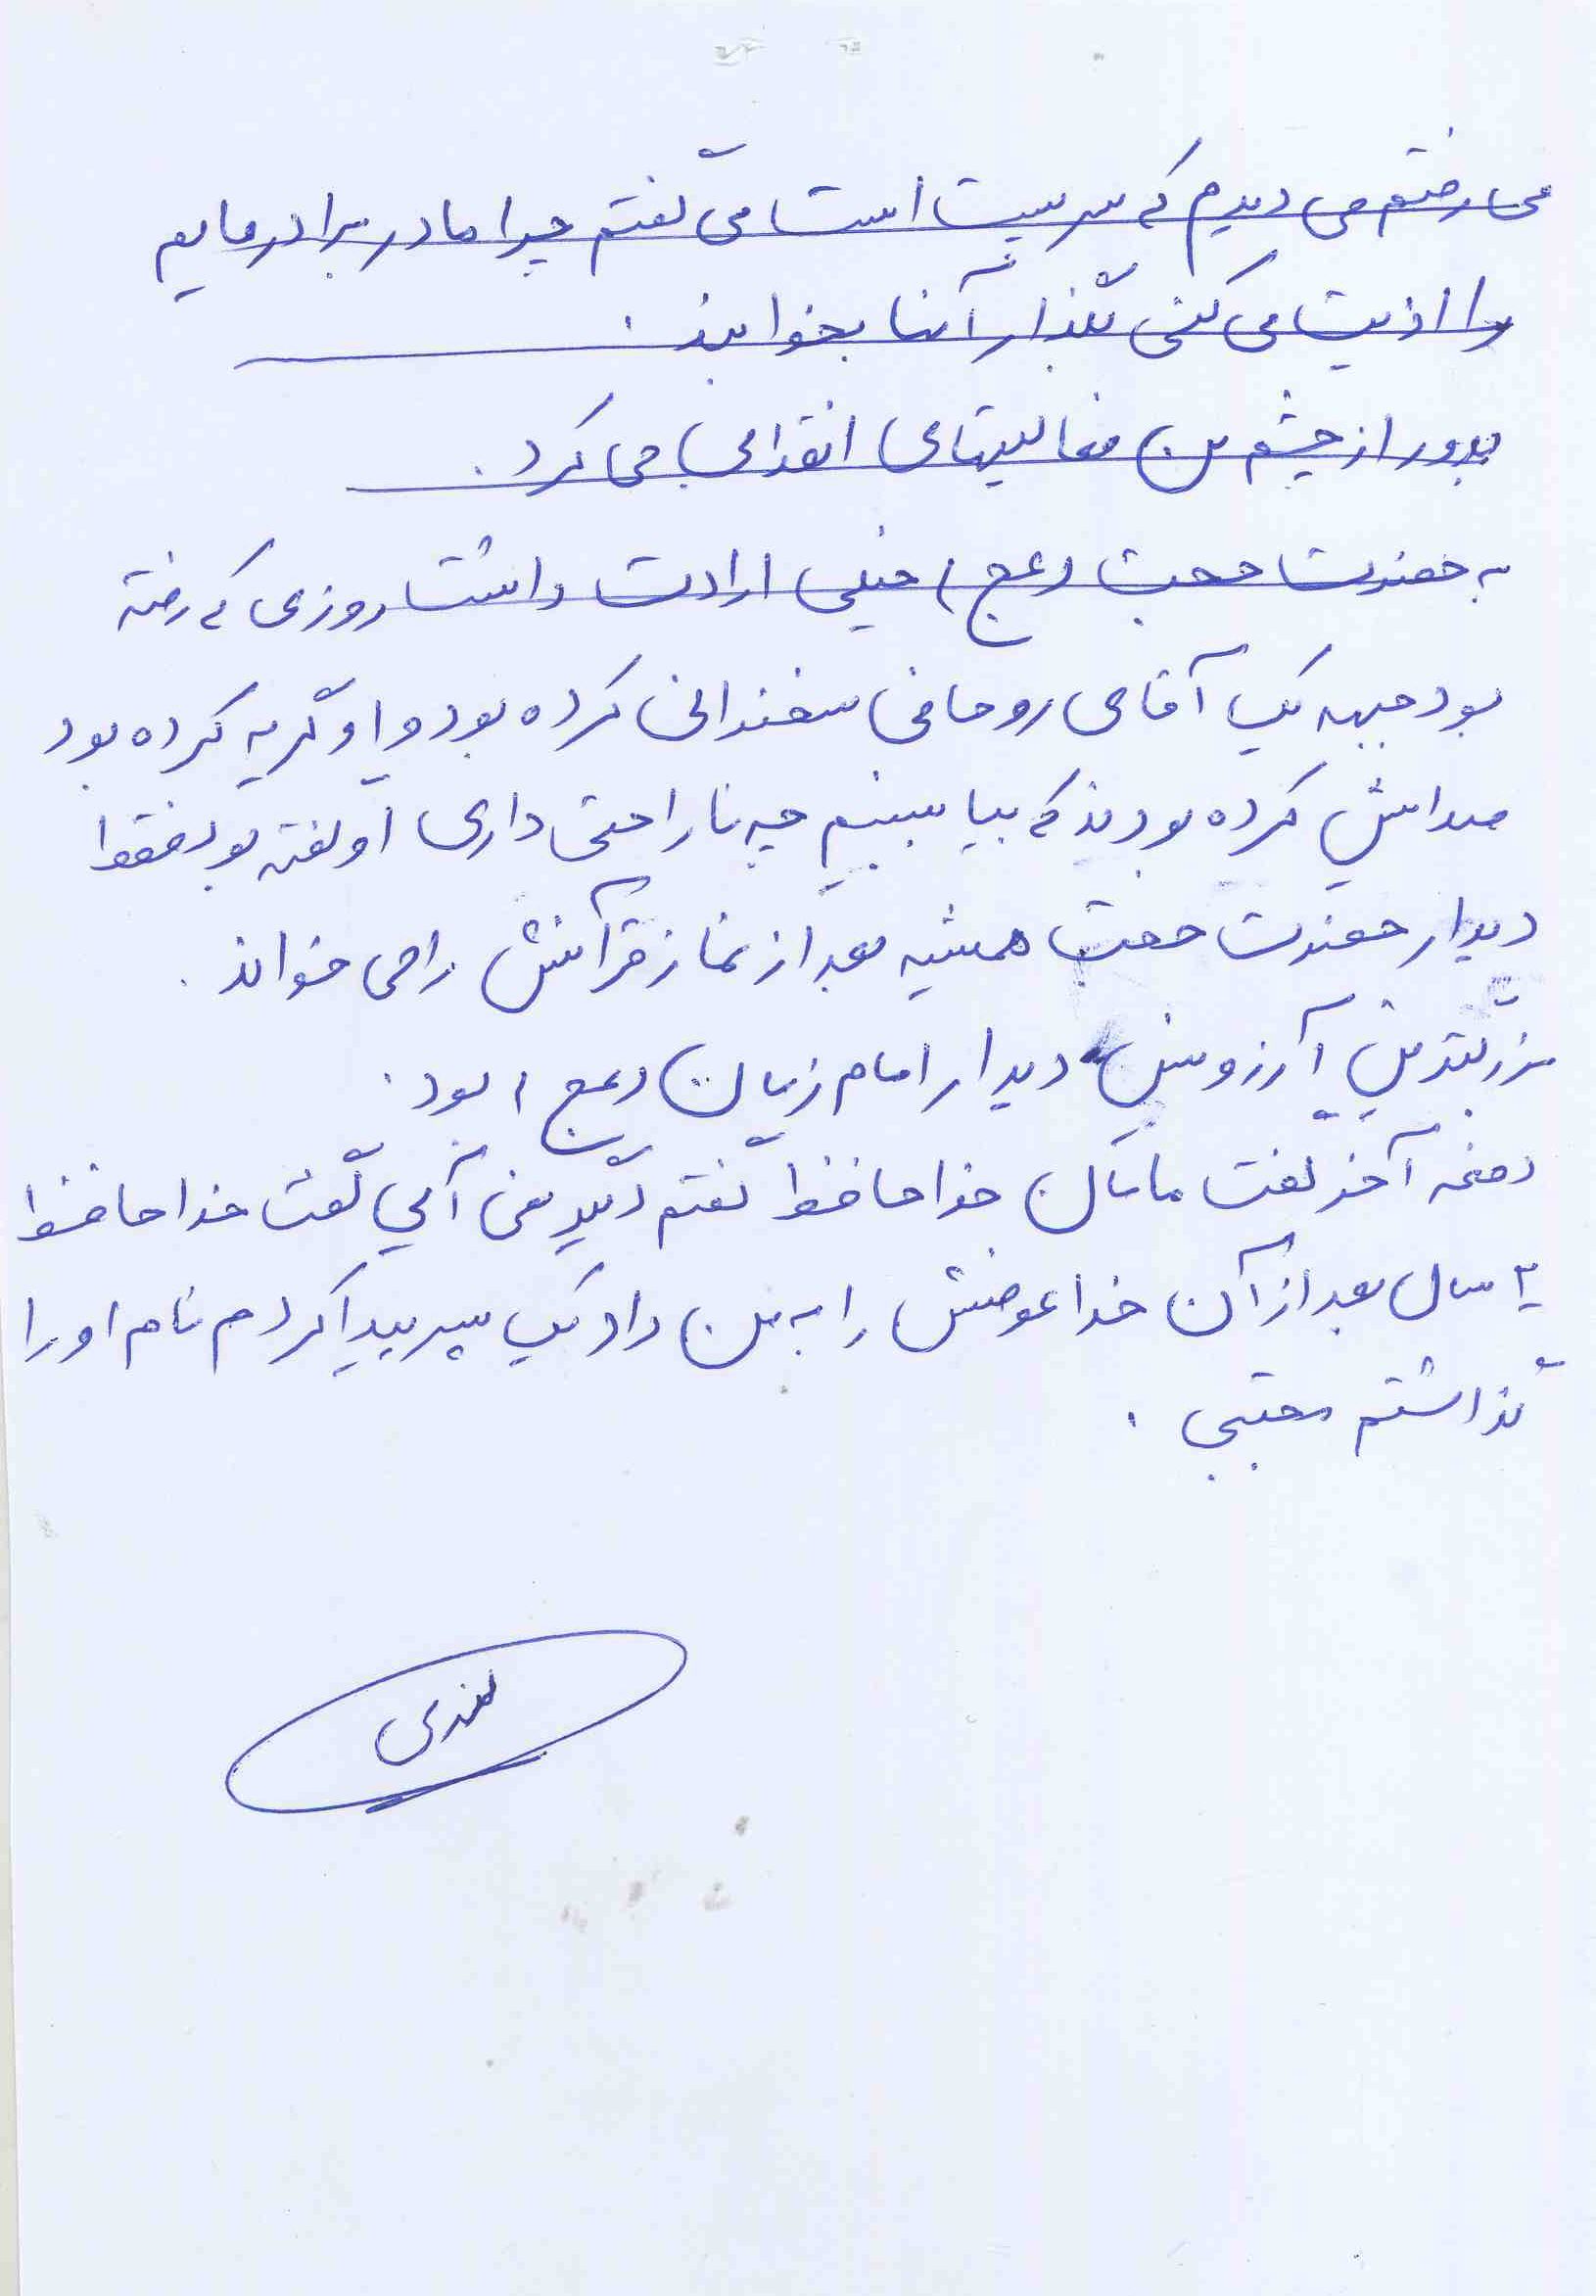 می رفتم می دیدم که سر پست است می گفتم چرا مادر برادرهایم
را اذیت می کنی بگذار آنها بخوابند .
بدور از چشم من فعالیتهای انقلابی می کرد .
به حضرت حجت (عج) خیلی ارادت داشت روزی که رفته
بود جبهه یک آقای روحانی سخنرانی کرده بود و او گریه کرده بود
صدایش کرده بودند که بیا ببینم چه ناراحتی داری او گفته بود فقط
دیدار حضرت حجت همیشه بعد از نماز قرآنش را می خواند .
بزرگترین آرزویش دیدار امام زمان (عج) بود .
دفعه آخر گفت مامان خداحافظ گفتم دیگر نمی آیی گفت خداحافظ
۲ سال بعد از آن خدا عوضش را به من داد یک پسر پیدا کردم نام او را
گذاشتم مجتبی .